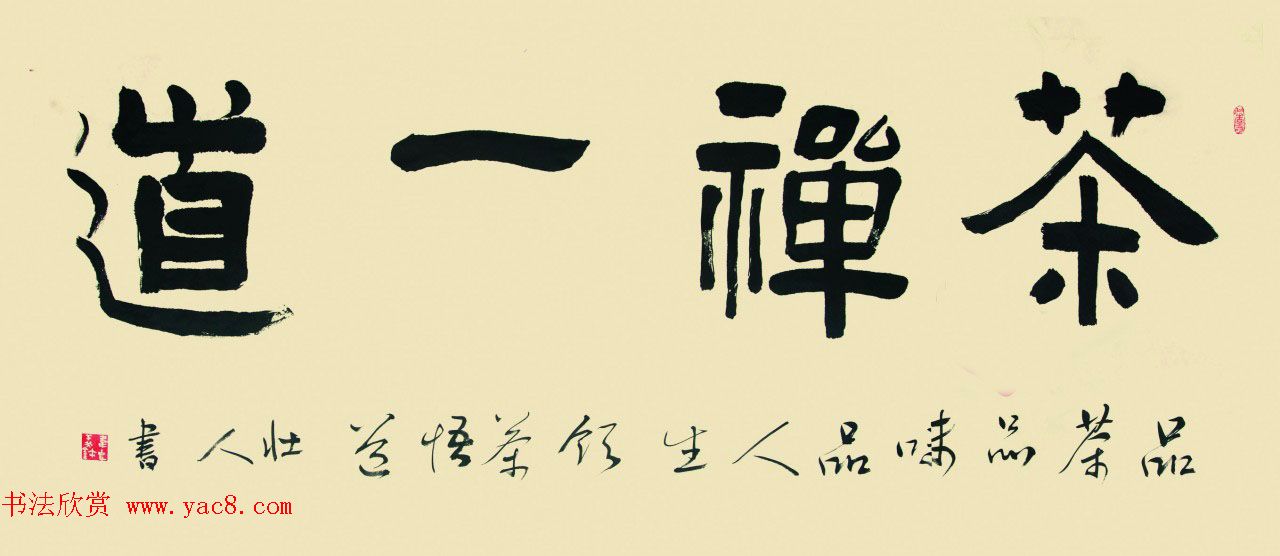 茶禪一道
品茶品味品人生 饮茶悟道 壮人書
书法欣赏 www.yac8.com